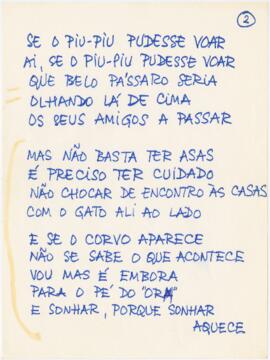 2
SE O PIU-PIU PUDESSE VOAR
AI, SE O PIU-PIU PUDESSE VOAR
QUE BELO PÁSSARO SERIA
OLHANDO LÁ DE CIMA
OS SEUS AMIGOS A PASSAR
MAS NÃO BASTA TER ASAS
É PRECISO TER CUIDADO
NÃO CHOCAR DE ENCONTRO ÀS CASAS
COM O GATO ALI AO LADO
E SE O CORVO APARECE
NÃO SE SABE O QUE ACONTECE
VOU MAS É EMBORA
PARA O PÉ DO "ORA"
E SONHAR, PORQUE SONHAR
AQUECE